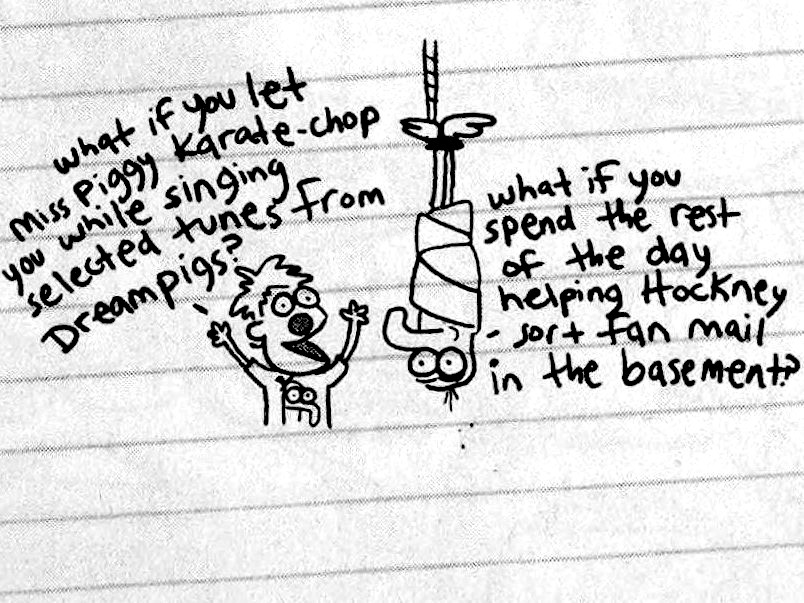 what if you let
miss piggy karate-chop
you while singing
selected tunes from
Dreampigs?
what if you
spend the rest
of the day
helping Hockney
sort fan mail
in the basement?